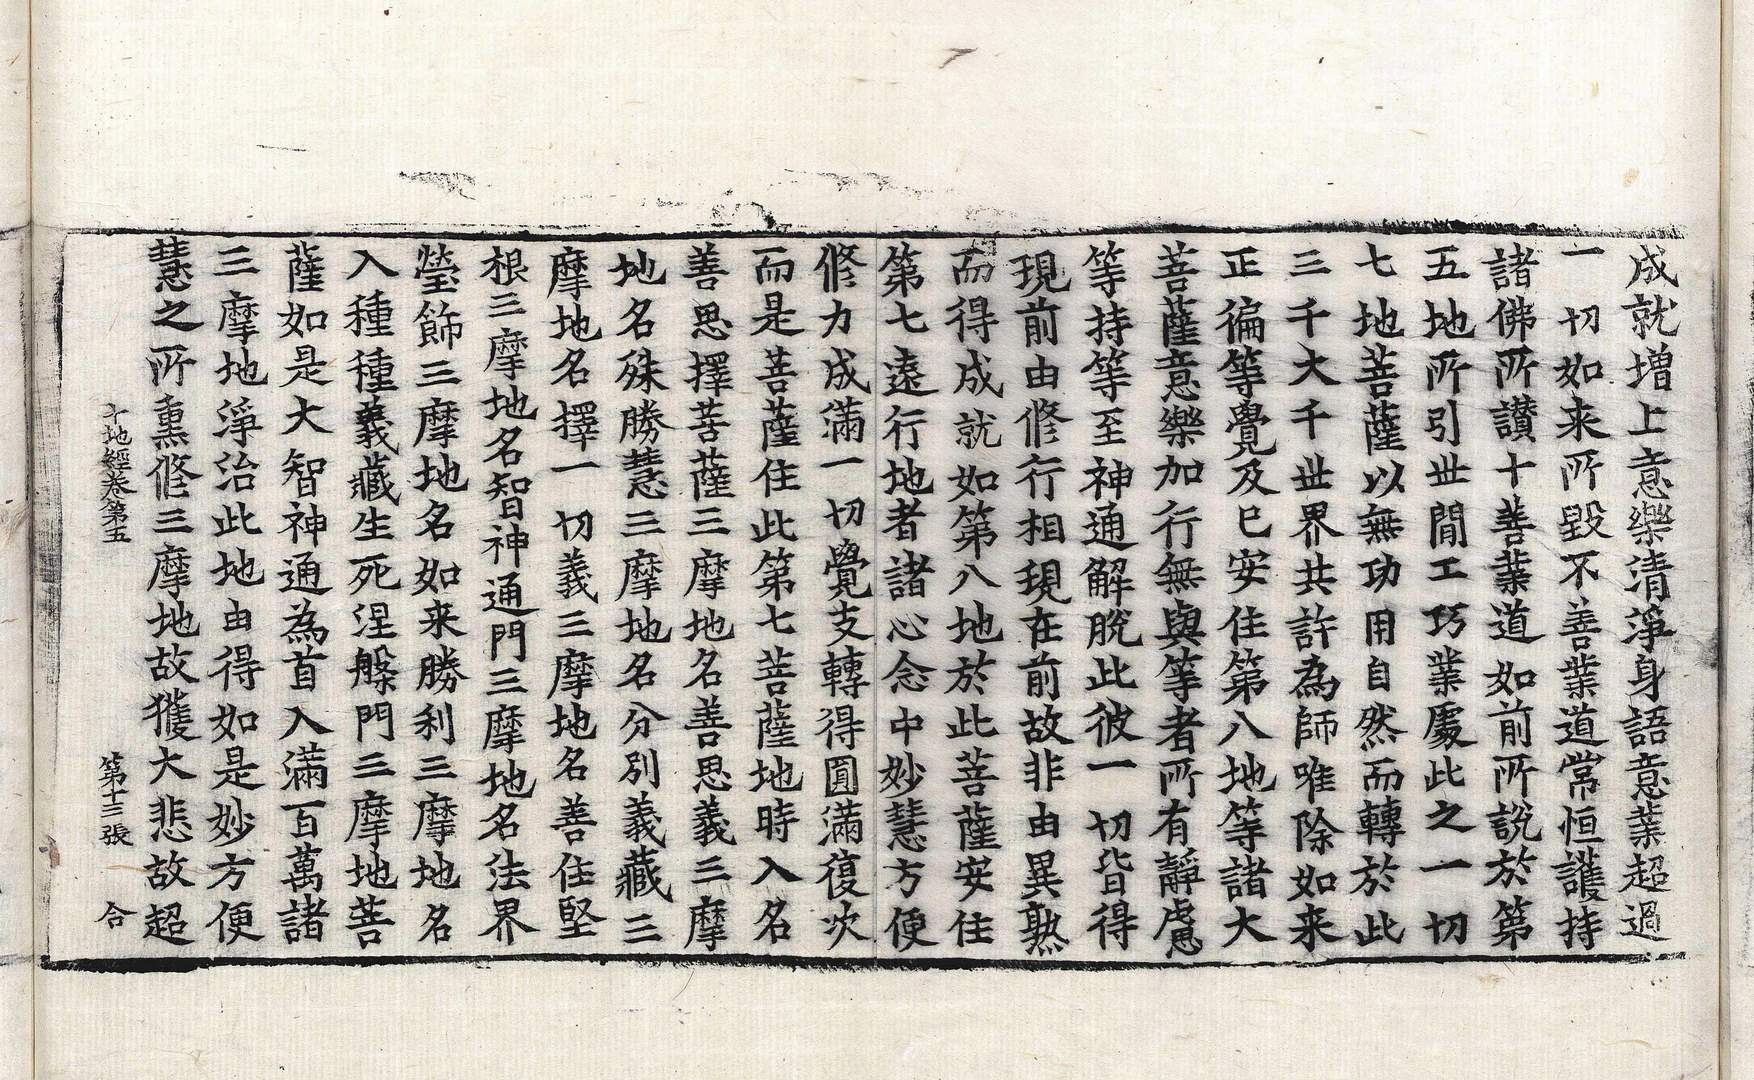 成就增上意樂清淨身語意業超過
一切如来所毀不善業道常恒護持
諸佛所讃十善業道如前所說於第
五地所引世間工巧業處此之一切
七地菩薩以無功用自然而轉於此
三千大千世界共許為師唯除如来
正徧等覺及已安住第八地等諸大
菩薩意樂加行無與等者所有靜慮
等持等至神通解脫此彼一切皆得
現前由修行相現在前故非由異熟
而得成就如第八地於此菩薩安住
第七遠行地者諸心念中妙慧方便
修力成滿一切覺支轉得圓滿復次
而是菩薩住此第七菩薩地時入名
善思擇菩薩三摩地名善思義三摩
地名殊勝慧三摩地名分別義藏三
摩地名擇一切義三摩地名善住堅
根三摩地名智神通門三摩地名法界
瑩飾三摩地名如来勝利三摩地名
入種種義藏生死涅槃門三摩地菩
薩如是大智神通為首入滿百萬諸
三摩地淨治此地由得如是妙方便
慧之所熏修三摩地故獲大悲故超
十地經卷第五 第十三張 合